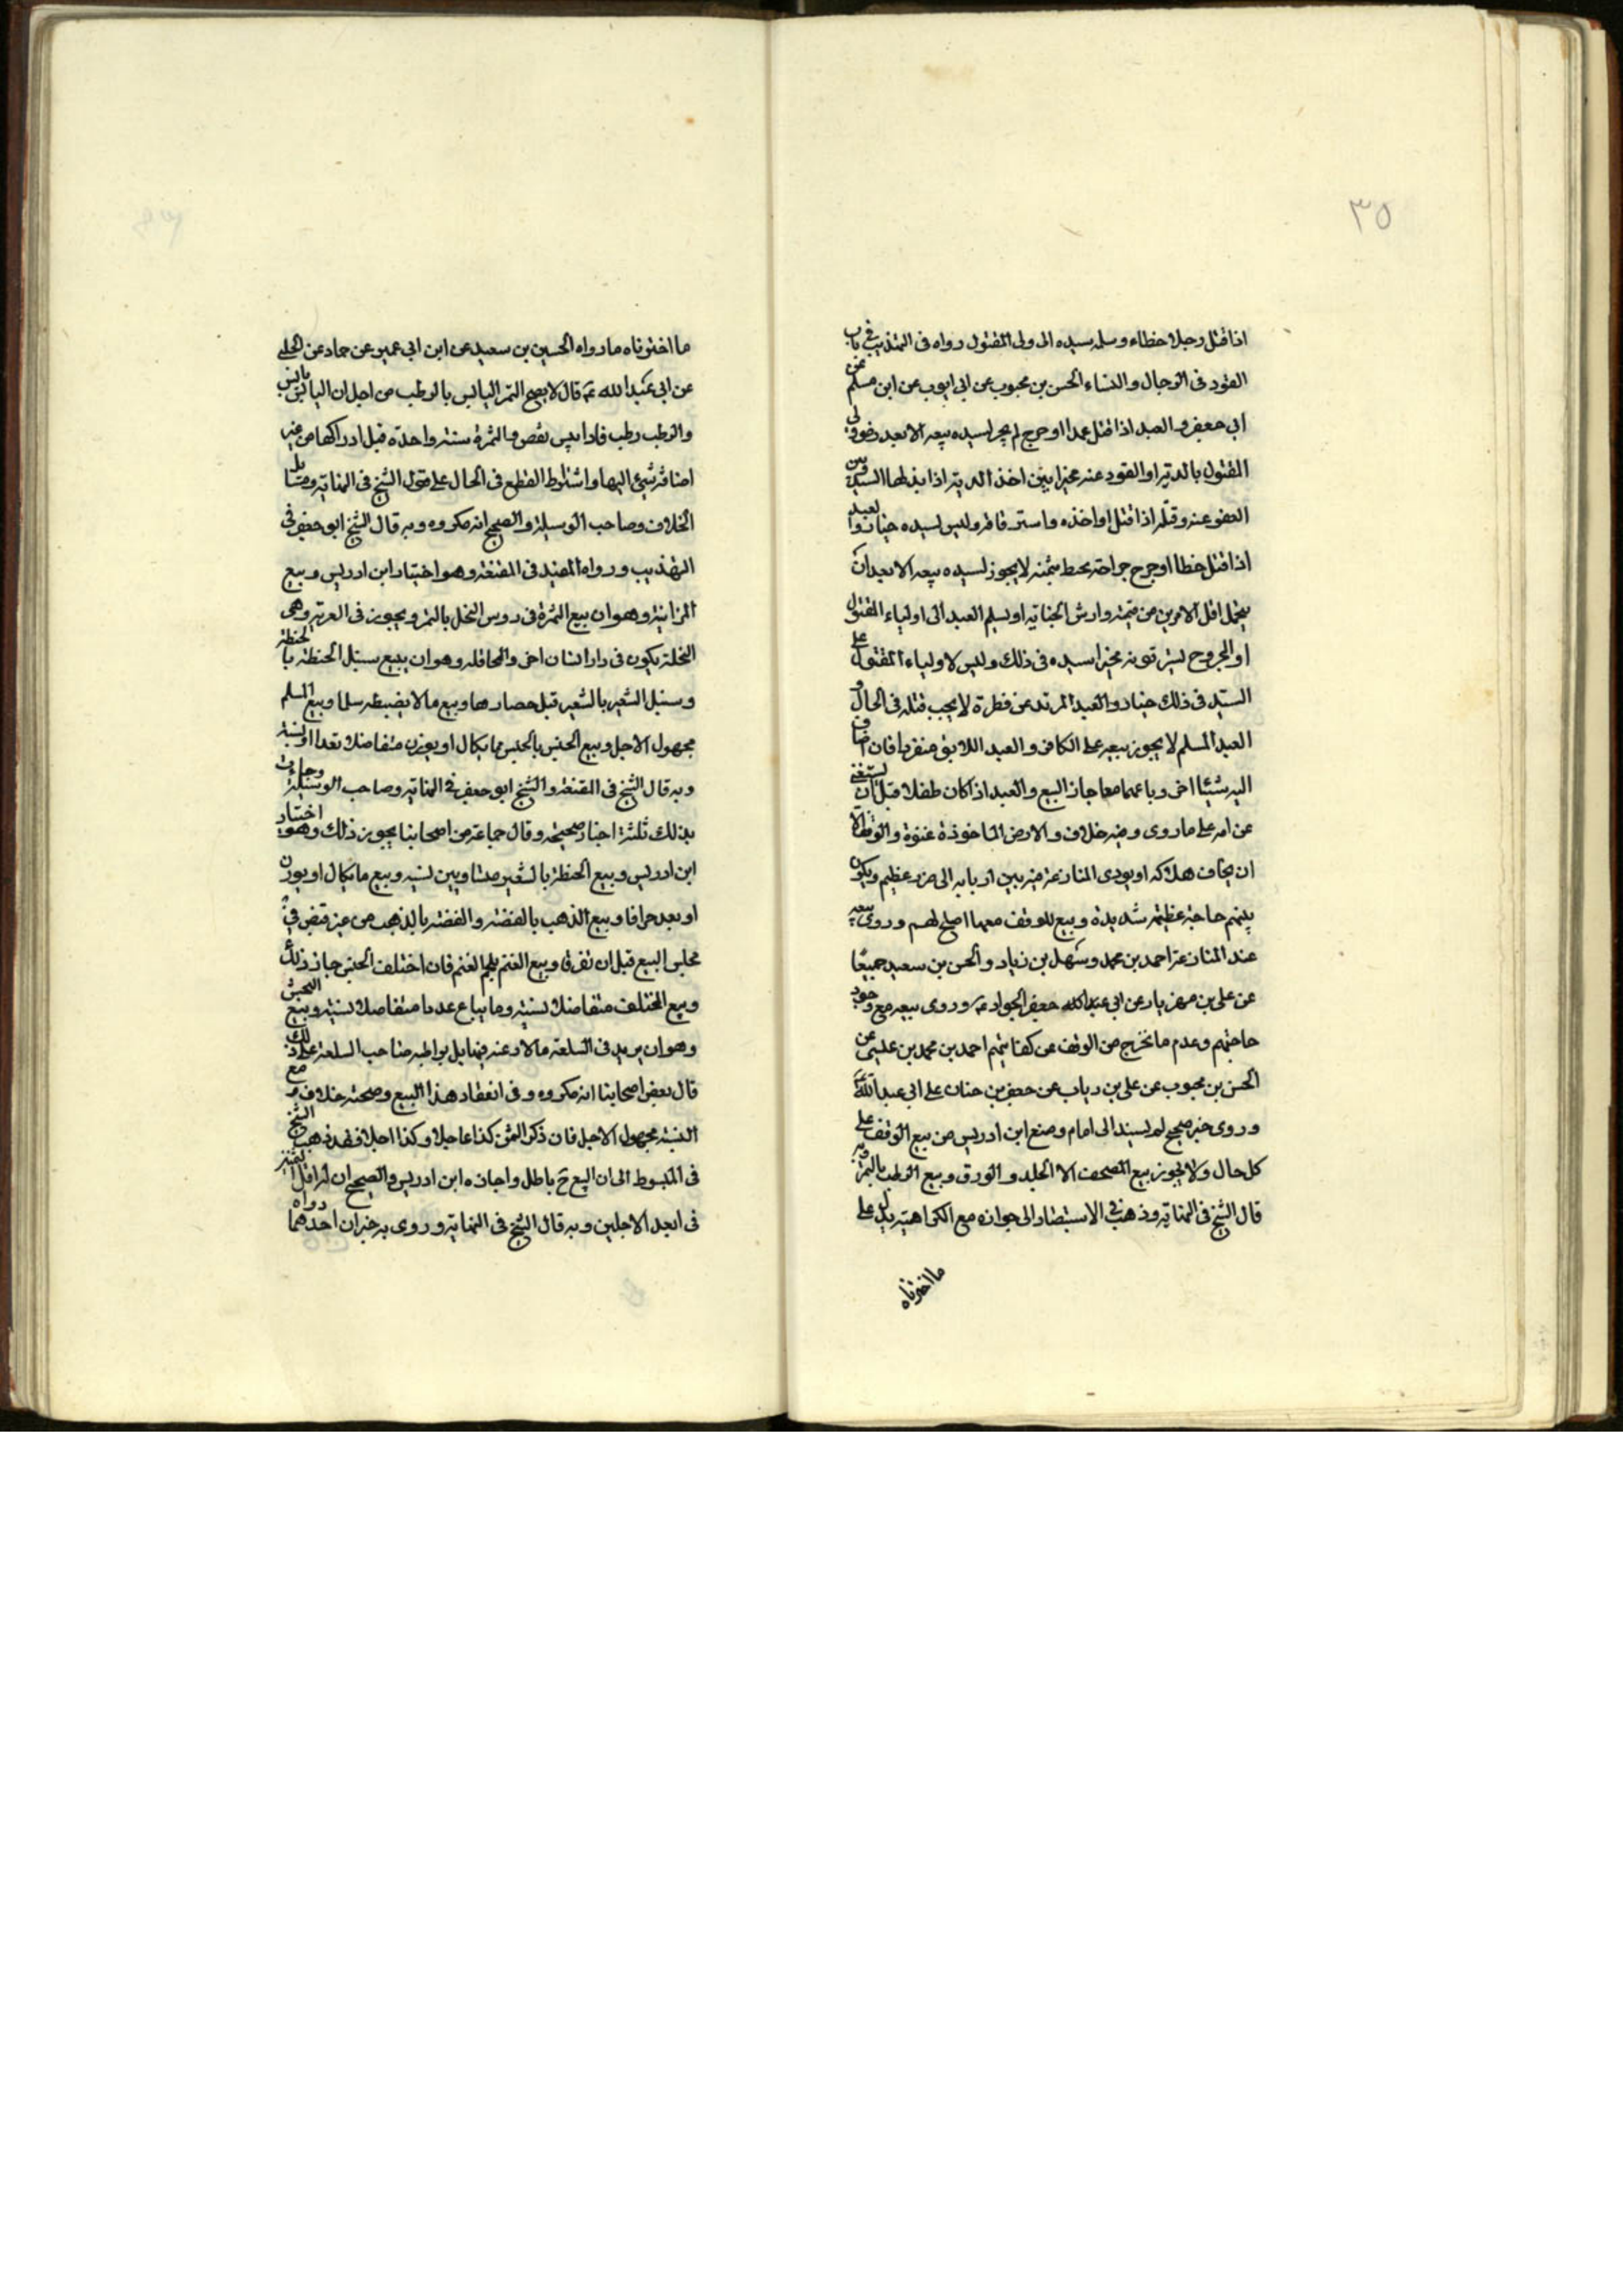 ٣٥
اذا قتل رجلا خطاء وسلمه سيده الى ولى المقتول رواه فى التهذيب فى باب
القود فى الرجال والنساء الحسن بن محبوب عن ابى ايوب عن ابن مسلم عن
ابى جعفر والعبد اذا قتل عمدا اوجرح لم يجز لسيده بيعه الا بعد رضو ولى
المقتول بالدية او القود عنه مخير بين اخذ الدية اذا بذلها السيد وبين
العفو عنه وقتله اذا قتل او اخذه واسترقاقه وليس لسيده خيار والعبد
اذا قتل خطا اوجرح جراحة يحيط بثمنه لا يجوز لسيده بيعه الا بعد ان
يتحمل اقل الامرين من قيمته وارش الجناية او يسلم العبد الى اولياء المقتول
او المجروح يسترقونه مخير سيده فى ذلك وليس لاولياء المقتول على
السيد فى ذلك خيار والعبد المرتد عن فطرة لا يجب قتله فى الحال و
العبد المسلم لا يجوز بيعه على الكافر والعبد الابق منفردا فان اضاف
اليه شيئا اخر وباعهما معا جاز البيع والعبد اذا كان طفلا قبل ان يستغنى
عن امه على ما روى وفيه خلاف والارض الماخوذة عنوة والوقف الا
ان يخاف هلاكه او يودى المنازعة فيه بين اربابه الى ضرر عظيم ويكون
بينهم حاجة عظيمة شديدة وبيع الوقف معها اصلح لهم وروى بيعه
عند المنازعة احمد بن محمد وسهل بن زياد والحسن بن سعيد جميعا
عن على بن مهزيار عن ابى عبد الله جعفر الجواد ع وروى بيعه مع وجود
حاجتهم وعدم ما تخرج من الوقف عن كفايتهم احمد بن محمد بن عيسى عن
الحسن بن محبوب عن على بن رياب عن جعفر بن حنان على ابى عبد الله ع
وروى خبر صحيح لم يسند الى امام ومنع ابن ادريس من بيع الوقف على
كل حال ولا يجوز بيع المصحف الا الجلد والورق وبيع الرطب بالتمر وبه
قال الشيخ فى النهاية وذهب فى الاستبصار الى جوازه مع الكراهية يدل على
ما اخترناه
ما اخترناه ما رواه الحسين بن سعيد عن ابن ابى عمير عن حماد عن الحلبى
عن ابى عبد الله ع قال لا يصح التمر اليابس بالرطب من اجل ان اليابس يابس
والرطب رطب فاذا يبس نقص والثمرة سنة واحدة قبل ادراكها من غير
اضافة شىء اليها واشتراط القطع فى الحال على قول الشيخ فى النهاية ومسائل
الخلاف وصاحب الوسيلة والصحيح انه مكروه وبه قال الشيخ ابو جعفر فى
التهذيب ورواه المفيد فى المقنعة وهو اختيار ابن ادريس وبيع
المزابنة وهو ان يبيع الثمرة فى روس النخل بالتمر ويجوز فى العرية وهى
النخلة يكون فى دار انسان اخر والمحاقلة وهو ان يبيع سنبل الحنطة بالحنطة
وسنبل الشعير بالشعير قبل حصارها وبيع ما لا يضبطه سلما وبيع السلم
مجهول الاجل وبيع الجنس بالجنس مما يكال او يوزن متفاضلا نقدا او نسية
وبه قال الشيخ فى المقنعة والشيخ ابو جعفر فى النهاية وصاحب الوسيلة وجاءت
بذلك ثلثة اخبار صحيحة وقال جماعة من اصحابنا يجوز ذلك وهو اختيار
ابن ادريس وبيع الحنطة بالشعير متساويين نسية وبيع ما يكال او يوزن
او يعد جزافا وبيع الذهب بالفضة والفضة بالذهب من غير قبض فى
مجلس البيع قبل ان تفرقا وبيع الغنم بلحم الغنم فان اختلف الجنس جاز ذلك
وبيع المختلف متفاضلا نسية وما يباع عددا متفاضلا نسية وبيع النجش
وهو ان يزيد فى السلعة مالا رغبة فيها بل يواطيه صاحب السلعة على ذلك
قال بعض اصحابنا انه مكروه وفى انعقاد هذا البيع وصحته خلاف وبيع
النسية مجهول الاجل فان ذكر الثمن كذا عاجلا وكذا اجلا فقد ذهب الشيخ
فى المبسوط الى ان البيع ح باطل واجازه ابن ادريس والصحيح ان له اقل الثمنين
فى ابعد الاجلين وبه قال الشيخ فى النهاية وروى به خبران احدهما رواه